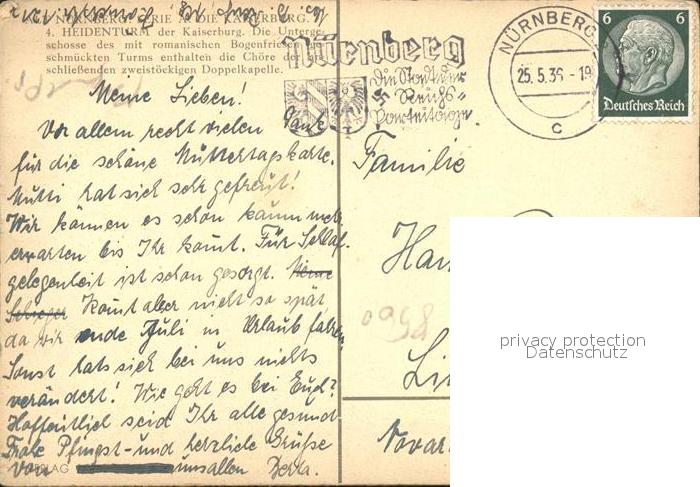 NÜRNBERG, SERIE A: DIE KAISERBURG.
4. HEIDENTURM der Kaiserburg. Die Unterge-
schosse des mit romanischen Bogenfriesen ge-
schmückten Turms enthalten die Chöre der
schließenden zweistöckigen Doppelkapelle.
Nürnberg
die Stadt der
Reichs=
parteitage.
NÜRNBERG
25.5.36-19
c
6 6
Deutsches Reich
Meine Lieben!
Vor allem recht vielen Dank
für die schöne Muttertagskarte.
Mutti hat sich sehr gefreut!
Wir können es schon kaum mehr
erwarten bis Ihr komt. Für Schlaf-
gelegenheit ist schon gesorgt. Meine
komt aber nicht so spät
da wir ende Juli in Urlaub fahren.
Sonst hats sich bei uns nichts
verändert! Wie geht es bei Euch?
Hoffentlich seid Ihr alle gesund
Frohe Pfingst- und herzliche Grüße
von uns allen Berta.
VERLAG
Familie
Han
Lin
Novar
0958
privacy protection
Datenschutz